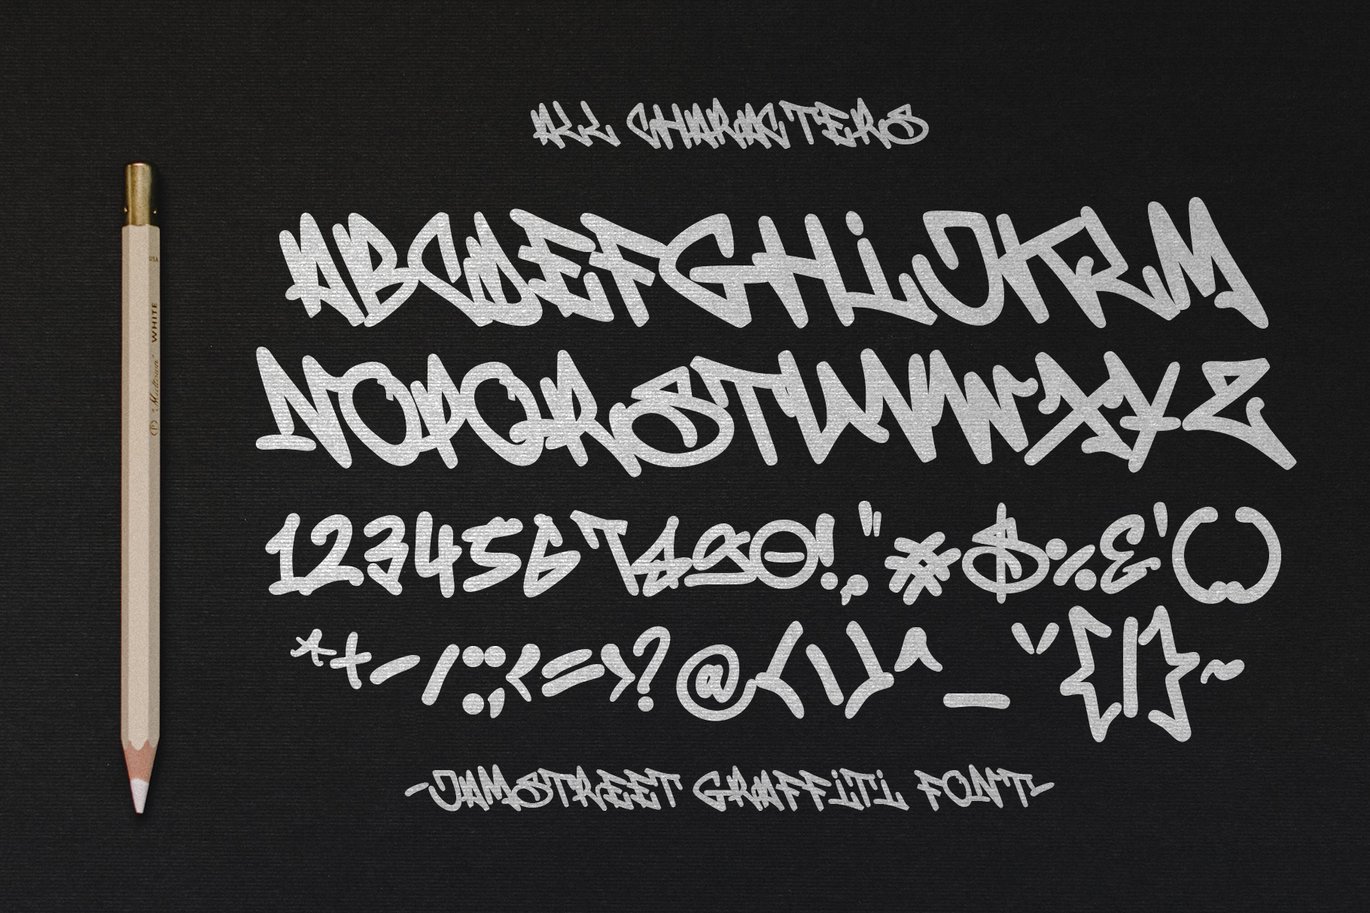 ALL CHARACTERS
ABCDEFGHiJKLM
NOPQRSTUVWXYZ
1234567890!,"#$%&'()
*+-/:;<=>?@[\]^_`{|}~
-JAMSTREET GRAFFiTi FONT-
WHITE